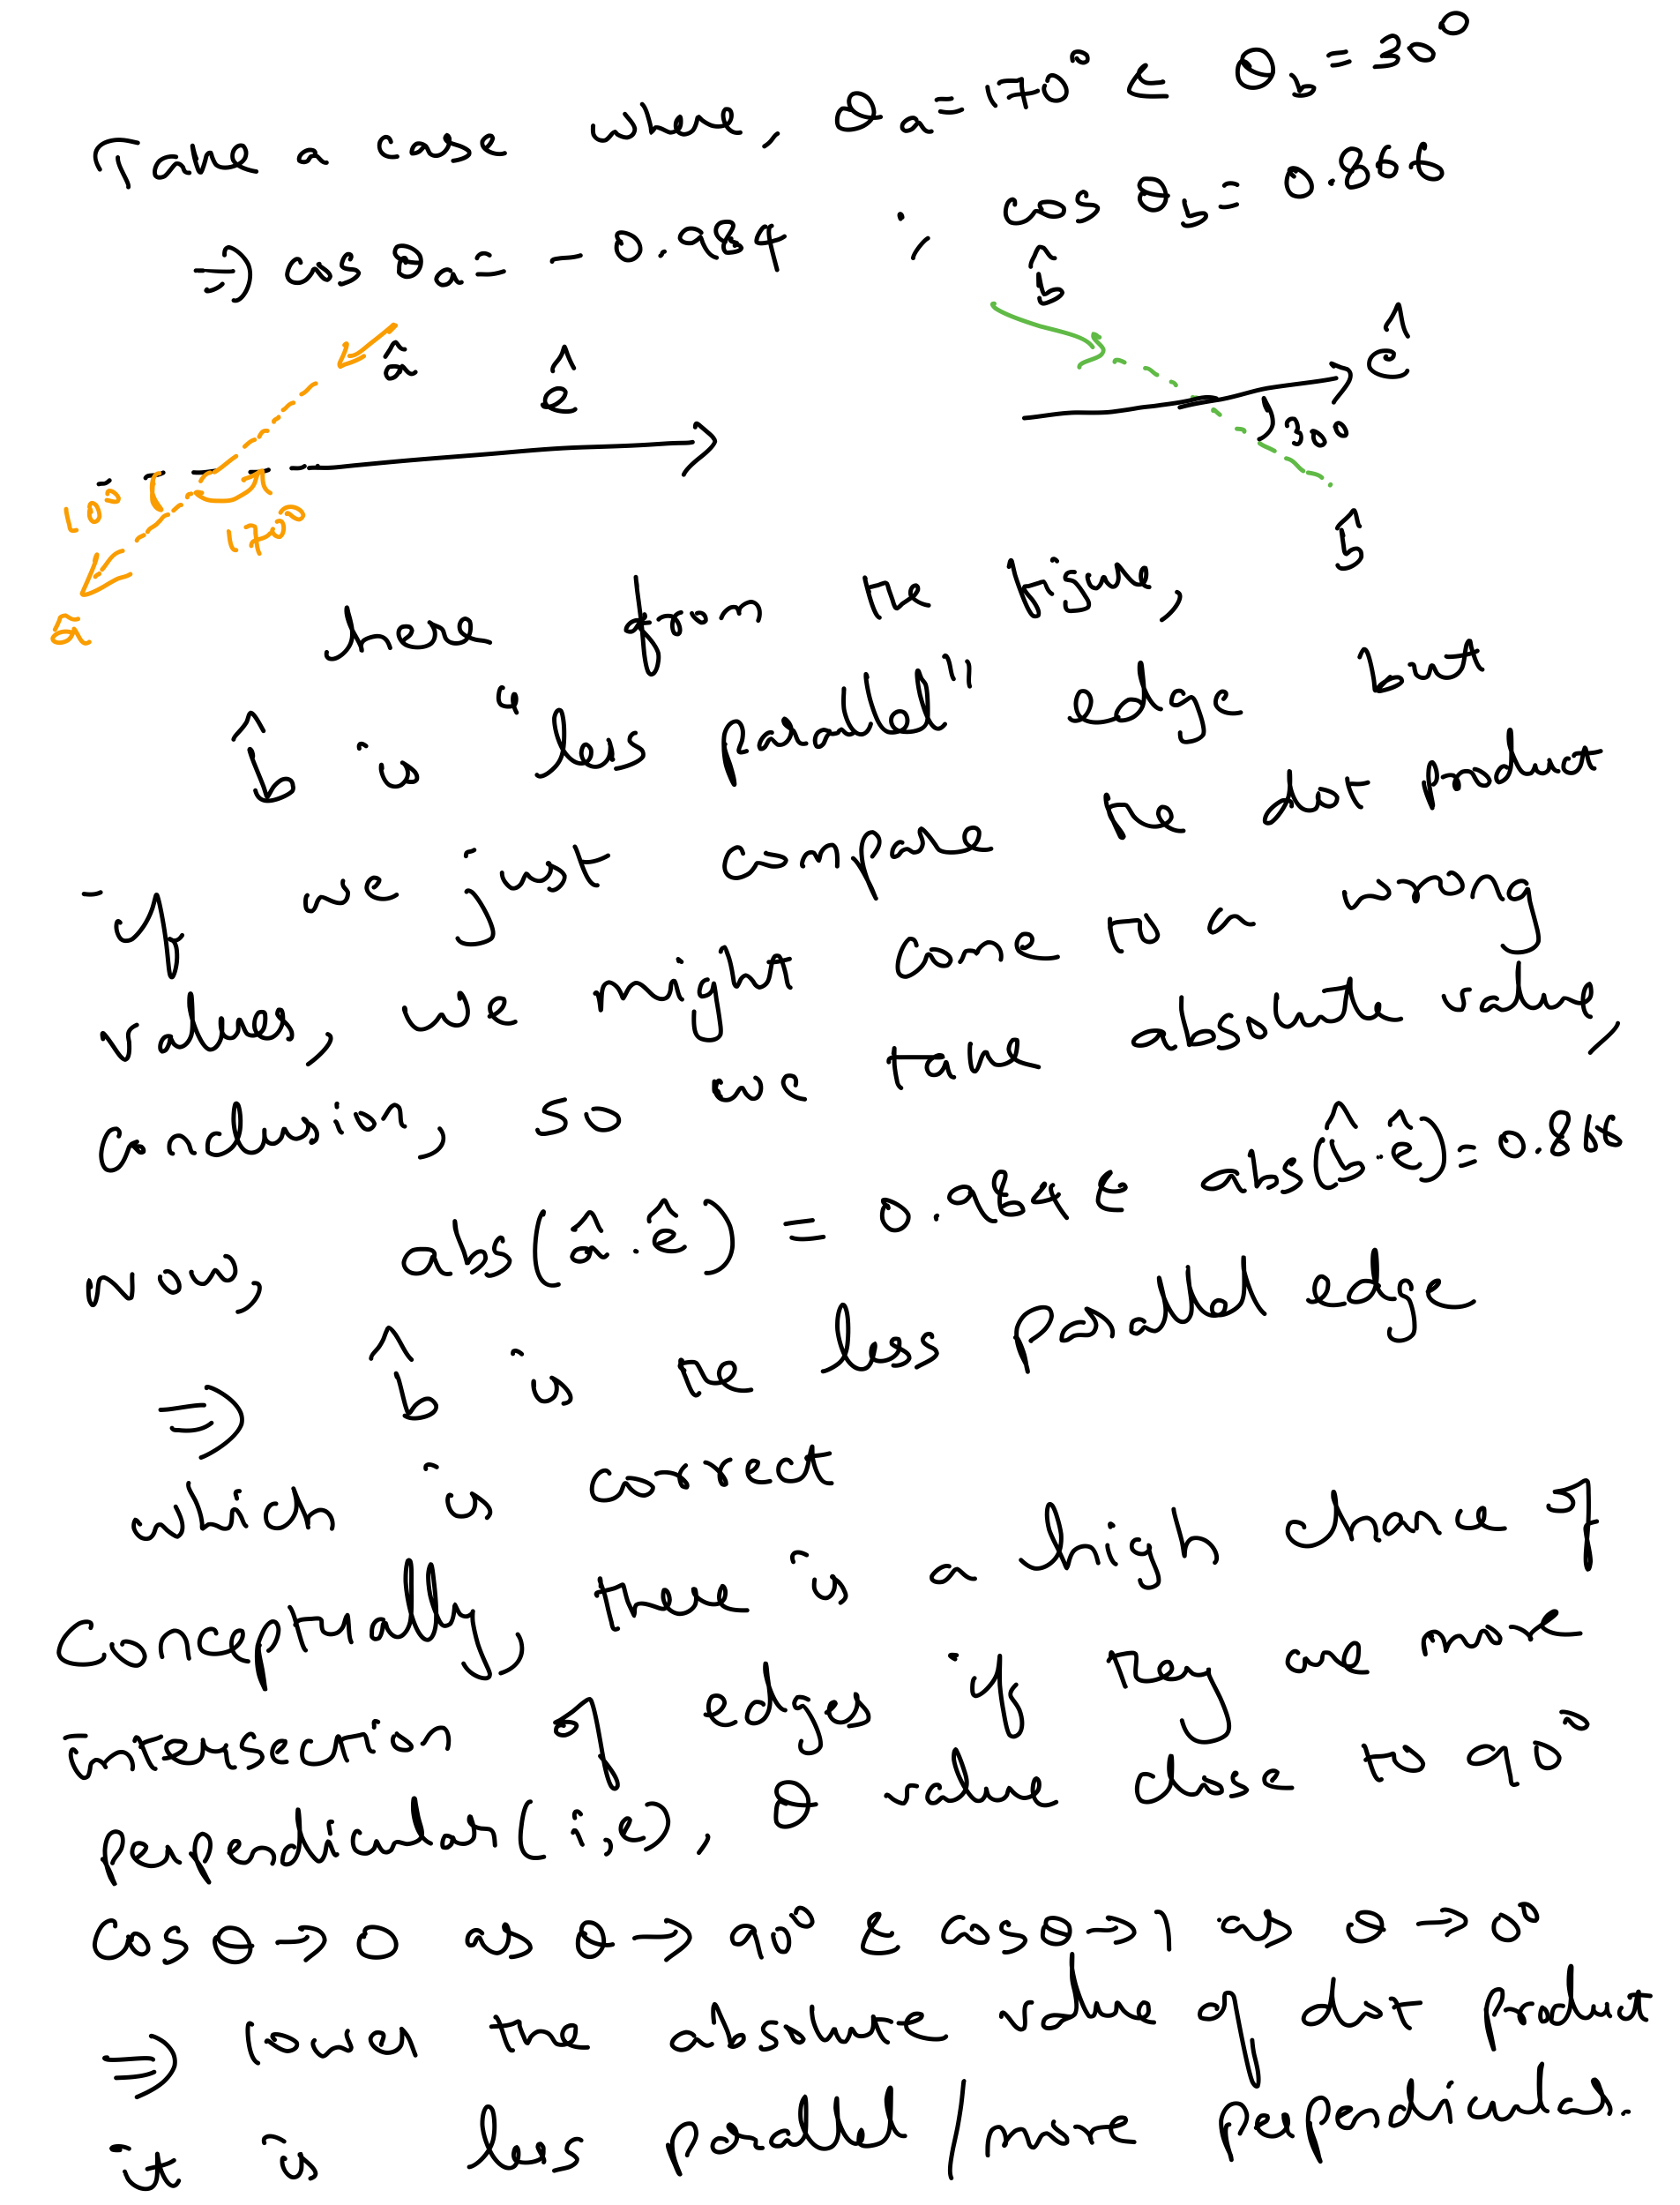 Take a case where, θa = 170° & θb = 30°
⇒ cos θa = - 0.984 ; cos θb = 0.866
b̂
â
ê
ê
30°
10°
170°
â
b̂
here from the figure,
b̂ is "less parallel" edge but
if we just compare the dot product
values, we might come to a wrong
conclusion, so we take absolute value,
now, abs(â.ê) = 0.984 & abs(b̂.ê) = 0.866
⇒ b̂ is the less parallel edge
which is correct
Conceptually, there is a high chance of
intersection of edges if they are more
Perpendicular (i.e), θ value close to 90°
Cos θ → 0 as θ → 90° & cos θ → 1 as θ → 0°
⇒ lower the absolute value of dot product
it is less parallel / more perpendicular.